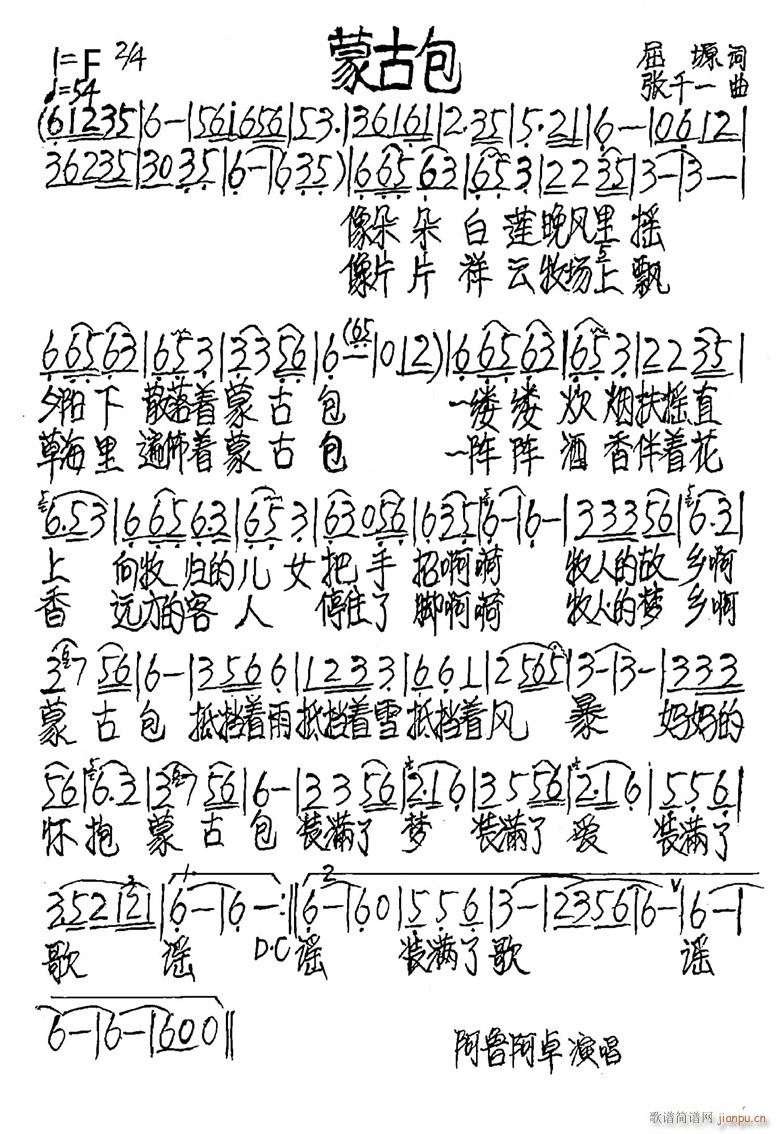 蒙古包
1=F 2/4
♩=54
屈塬 词
张千一 曲
(61235|6-|561656|53.|36161|2.35|5.21|6--|06121|
363235|3035|6-|6635)|66563|653|2235|3-|3--|
像朵朵白莲晚风里摇
像片片祥云牧场上飘
66563|653|3356|6(65|012)|66563|653|2235|
夕阳下散落着蒙古包 一缕缕炊烟扶摇直
草海里遍布着蒙古包 一阵阵酒香伴着花
6.53|66563|653|63056|635|6-|6-|33356|6.3|
上 向牧归的儿女把手招啊嗬 牧人的故乡啊
香 远方的客人停住了脚啊嗬 牧人的梦乡啊
3 7 56|6-|3566|12333|661|2565|3-|3-|333
蒙古包 抵挡着雨抵挡着雪抵挡着风暴 妈妈的
56|6.3|3 7 56|6-|3356|2.16|3556|2.16|556|
怀抱蒙古包装满了梦 装满了爱 装满了
3.52121|6-|6-:||6-|660|556|3-|23566-|6-|
歌 谣 D.C谣 装满了歌 谣
6-|6-|600||
阿鲁阿卓演唱
歌谱简谱网
jianpu.cn